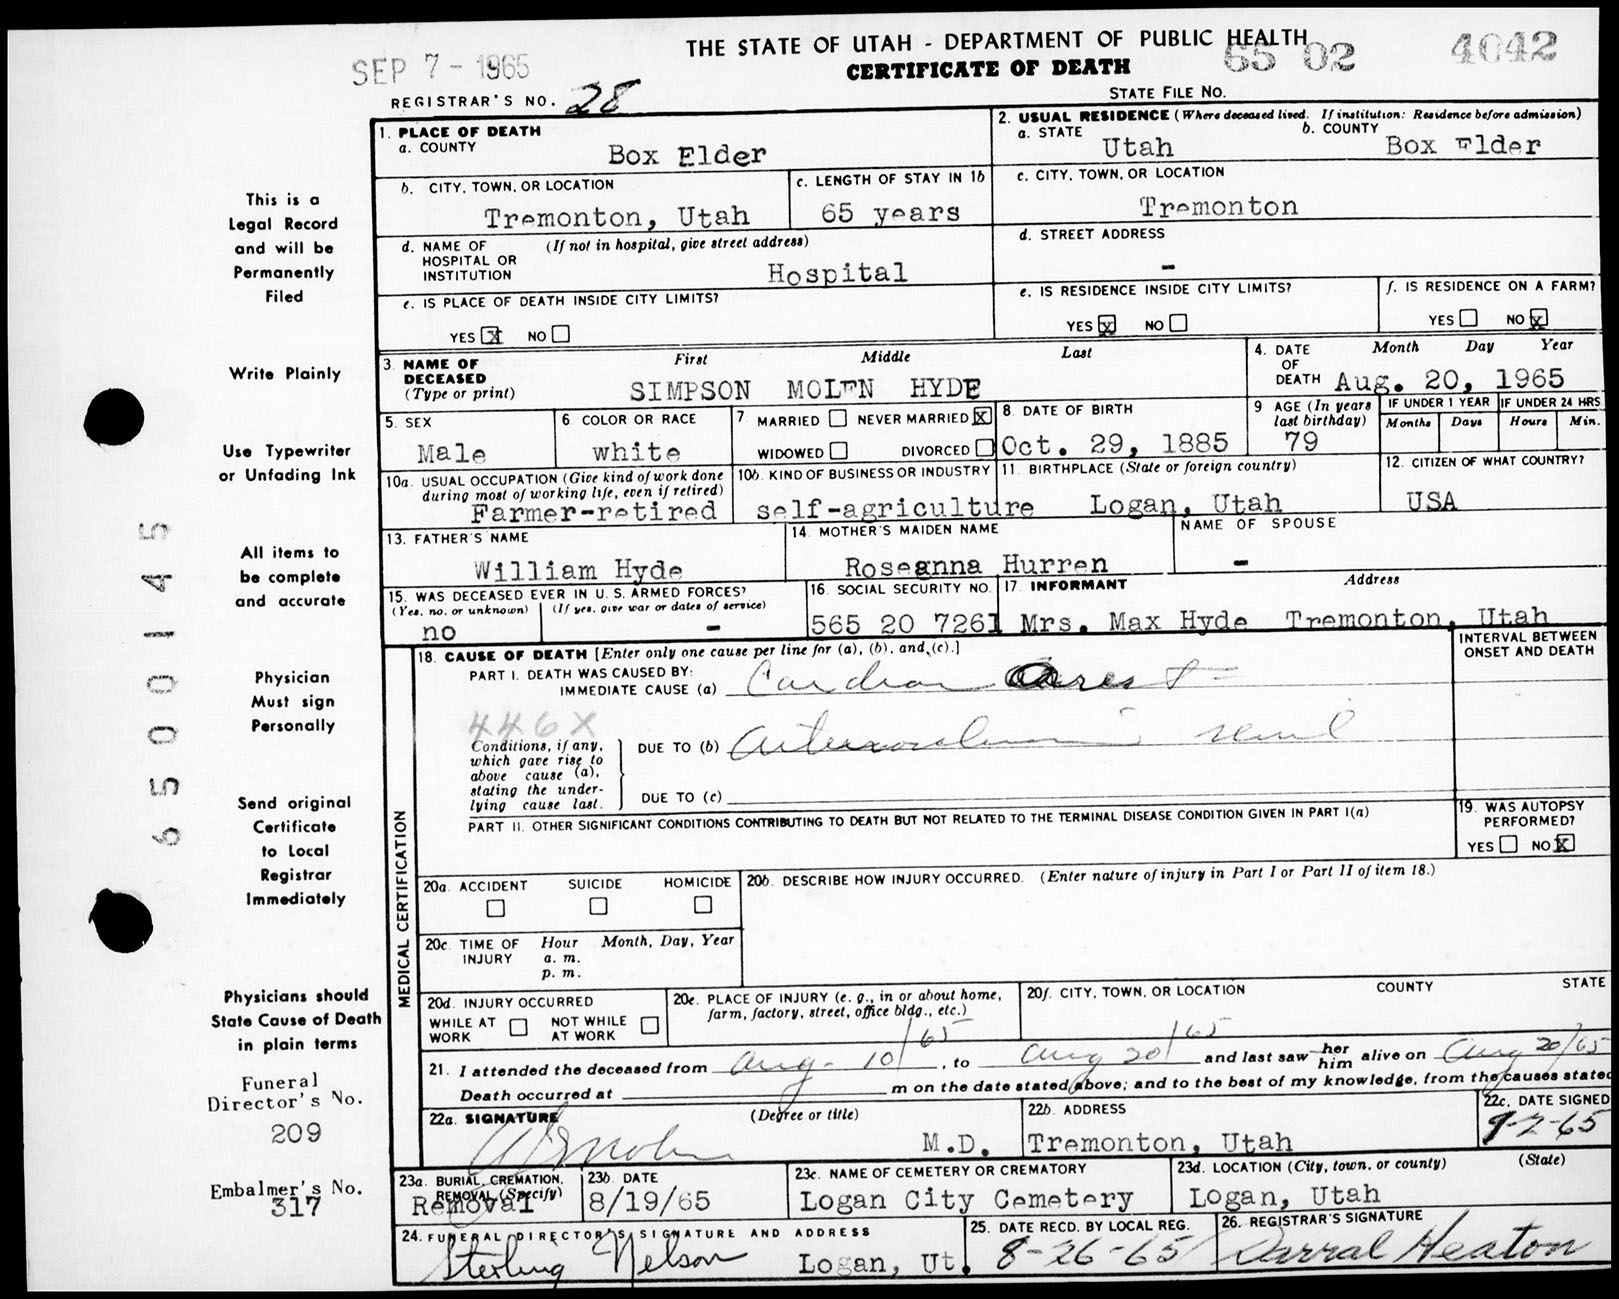 THE STATE OF UTAH - DEPARTMENT OF PUBLIC HEALTH
CERTIFICATE OF DEATH
SEP 7 - 1965
65 02 4042
STATE FILE NO.
REGISTRAR'S NO. 28
1. PLACE OF DEATH
a. COUNTY
Box Elder
2. USUAL RESIDENCE (Where deceased lived. If institution: Residence before admission)
a. STATE
Utah
b. COUNTY
Box Elder
b. CITY, TOWN, OR LOCATION
Tremonton, Utah
c. LENGTH OF STAY IN 1b
65 years
c. CITY, TOWN, OR LOCATION
Tremonton
d. NAME OF HOSPITAL OR INSTITUTION
(If not in hospital, give street address)
Hospital
d. STREET ADDRESS
-
e. IS PLACE OF DEATH INSIDE CITY LIMITS?
YES X NO
e. IS RESIDENCE INSIDE CITY LIMITS?
YES X NO
f. IS RESIDENCE ON A FARM?
YES NO X
3. NAME OF DECEASED
(Type or print)
First Middle Last
SIMPSON MOLEN HYDE
4. DATE OF DEATH
Month Day Year
Aug. 20, 1965
5. SEX
Male
6 COLOR OR RACE
white
7 MARRIED NEVER MARRIED X
WIDOWED DIVORCED
8. DATE OF BIRTH
Oct. 29, 1885
9 AGE (In years last birthday)
79
IF UNDER 1 YEAR
Months Days
IF UNDER 24 HRS
Hours Min.
10a. USUAL OCCUPATION (Give kind of work done during most of working life, even if retired)
Farmer-retired
10b. KIND OF BUSINESS OR INDUSTRY
self-agriculture
11. BIRTHPLACE (State or foreign country)
Logan, Utah
12. CITIZEN OF WHAT COUNTRY?
USA
13. FATHER'S NAME
William Hyde
14. MOTHER'S MAIDEN NAME
Roseanna Hurren
NAME OF SPOUSE
-
15. WAS DECEASED EVER IN U. S. ARMED FORCES?
(Yes, no, or unknown) (If yes, give war or dates of service)
no -
16. SOCIAL SECURITY NO.
565 20 7261
17. INFORMANT Address
Mrs. Max Hyde Tremonton, Utah
18. CAUSE OF DEATH [Enter only one cause per line for (a), (b), and (c).]
INTERVAL BETWEEN ONSET AND DEATH
PART I. DEATH WAS CAUSED BY:
IMMEDIATE CAUSE (a) Cardiac Arrest
446X
Conditions, if any, which gave rise to above cause (a), stating the underlying cause last.
DUE TO (b)
DUE TO (c)
PART II. OTHER SIGNIFICANT CONDITIONS CONTRIBUTING TO DEATH BUT NOT RELATED TO THE TERMINAL DISEASE CONDITION GIVEN IN PART I(a)
19. WAS AUTOPSY PERFORMED?
YES NO X
MEDICAL CERTIFICATION
20a. ACCIDENT SUICIDE HOMICIDE
20b. DESCRIBE HOW INJURY OCCURRED. (Enter nature of injury in Part I or Part II of item 18.)
20c. TIME OF INJURY
Hour Month, Day, Year
a. m.
p. m.
20d. INJURY OCCURRED
WHILE AT WORK NOT WHILE AT WORK
20e. PLACE OF INJURY (e. g., in or about home, farm, factory, street, office bldg., etc.)
20f. CITY, TOWN, OR LOCATION COUNTY STATE
21. I attended the deceased from Aug - 10/65, to Aug 20/65 and last saw her him alive on Aug 20/65
Death occurred at m on the date stated above; and to the best of my knowledge, from the causes stated
22a. SIGNATURE (Degree or title)
M.D.
22b. ADDRESS
Tremonton, Utah
22c. DATE SIGNED
9-2-65
23a. BURIAL, CREMATION, REMOVAL (Specify)
Removal
23b. DATE
8/19/65
23c. NAME OF CEMETERY OR CREMATORY
Logan City Cemetery
23d. LOCATION (City, town, or county) (State)
Logan, Utah
24. FUNERAL DIRECTOR'S SIGNATURE AND ADDRESS
Sterling Nelson Logan, Ut.
25. DATE RECD. BY LOCAL REG.
8-26-65
26. REGISTRAR'S SIGNATURE
Darral Heaton
This is a
Legal Record
and will be
Permanently
Filed
Write Plainly
Use Typewriter
or Unfading Ink
All items to
be complete
and accurate
Physician
Must sign
Personally
Send original
Certificate
to Local
Registrar
Immediately
Physicians should
State Cause of Death
in plain terms
Funeral
Director's No.
209
Embalmer's No.
317
6500145